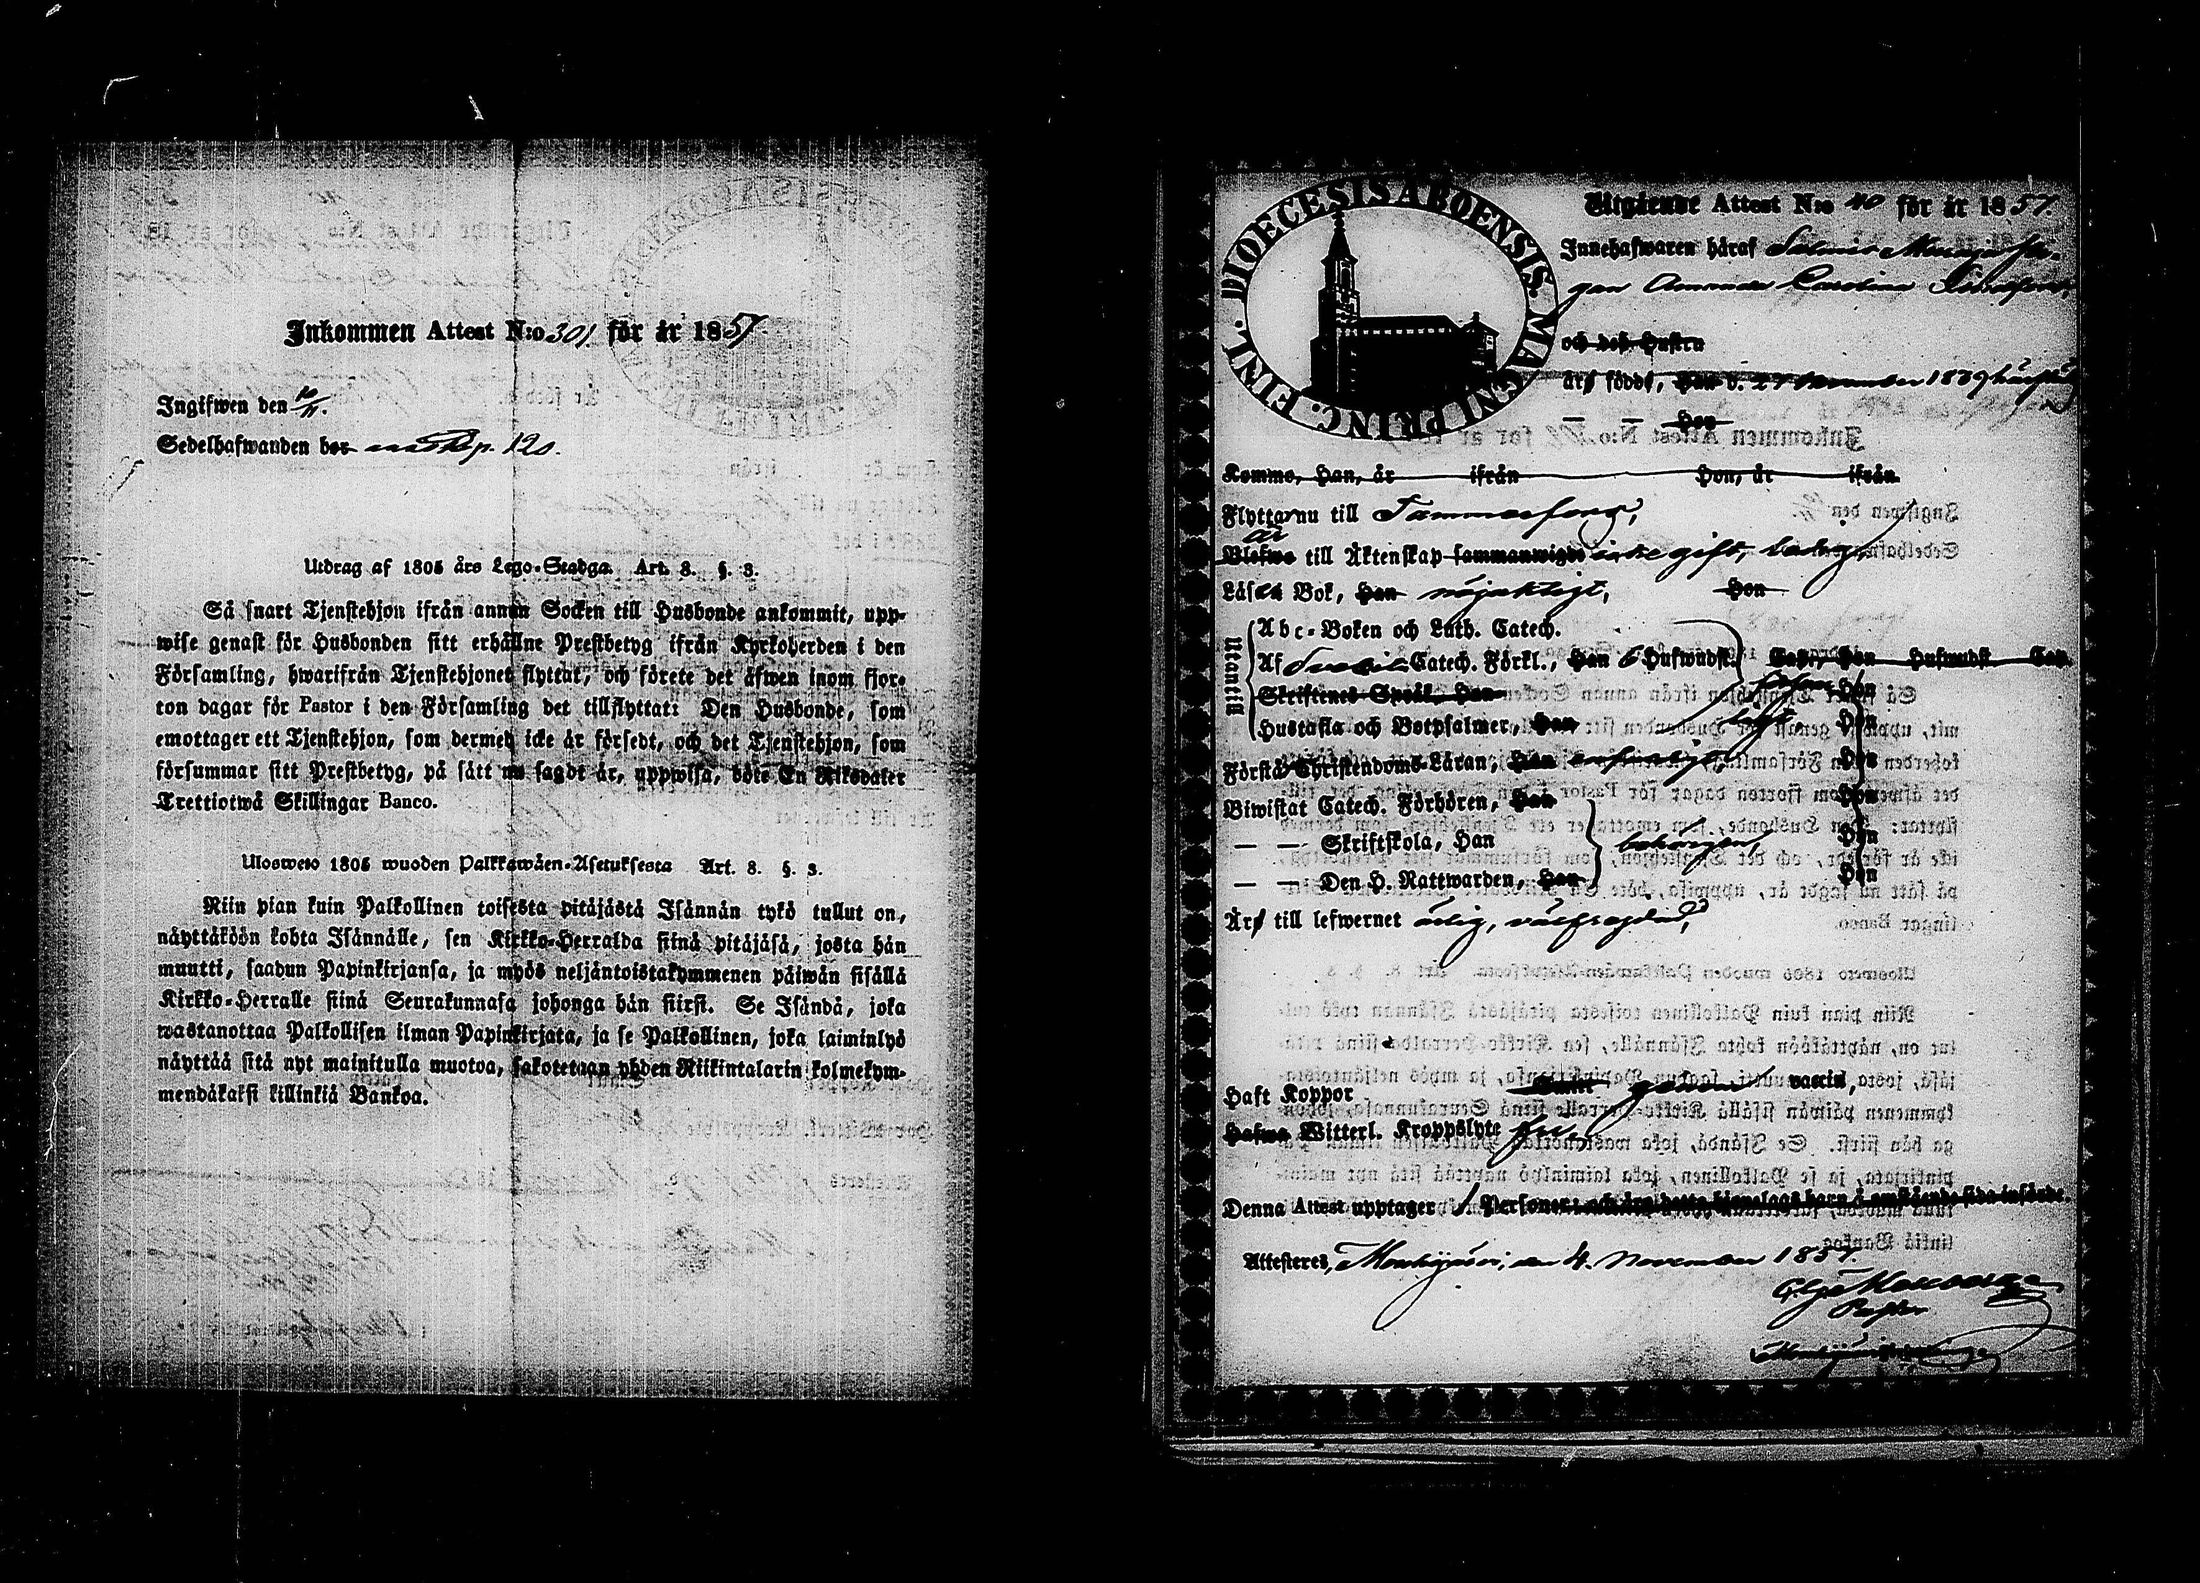 Inkommen Attest N:o 301 för år 1857
Ingifwen den 10/11.
Sedelhafwanden bor 120.
Utdrag af 1805 års Lego-Stadga. Art. 8. §. 3.
Så snart Tjenstehjon ifrån annan Socken till Husbonde ankommit, upp-
wise genast för Husbonden sitt erhållne Prestbetyg ifrån Kyrkoherden i den
Församling, hwarifrån Tjenstehjonet flyttat, och förete det äfwen inom fjor-
ton dagar för Pastor i den Församling det tillflyttat: Den Husbonde, som
emottager ett Tjenstehjon, som dermed icke är försedt, och det Tjenstehjon, som
försummar sitt Prestbetyg, på sätt nu sagdt är, uppwisa, böte En Riksdaler
Trettiotwå Skillingar Banco.
Ulosweto 1805 wuoden Palkkawäen-Asetuksesta Art. 8. §. 3.
Niin pian kuin Palkollinen toisesta pitäjästä Isännän tykö tullut on,
näyttäköön kohta Isännälle, sen Kirkko-Herralda siinä pitäjäsä, josta hän
muutti, saadun Papinkirjansa, ja myös neljäntoistakymmenen päiwän sisällä
Kirkko-Herralle siinä Seurakunnasa johonga hän siirsi. Se Isändä, joka
wastanottaa Palkollisen ilman Papinkirjata, ja se Palkollinen, joka laiminlyö
näyttää sitä nyt mainitulla muotoa, sakotetaan yhden Riikintalarin kolmekym-
mendäkaksi killinkiä Bankoa.
DIOECESIS ABOENSIS. MAGNI PRINC. FINL.
Utgående Attest N:o 40 för år 1857.
Innehafwaren häraf
Carolina
och des Hustru
äro födde, Han d. 27 November 1839 härstädes
— — Hon
Komme, Han, år ifrån Hon, år ifrån
Flyttar nu till Tammerfors,
är
Blefwo till Äktenskap sammanwigde icke gift, ledig,
Läser Bok, Han nöjaktigt, Hon
Utanläsn
Abc-Boken och Luth. Catech.
Af Svebilii Catech. Förkl., Han 6 Hufwudst. Cap., Hon Hufwudst. Cap.
Skriftenes Språk, Han Hon
Hustafla och Botpsalmer, Han Hon
Förstå Christendoms-Läran, Han Hon
Biwistat Catech. Förhören, Han Hon
— — Skriftskola, Han behörigen, Hon
— — Den H. Nattwarden, Han Hon
Äro till lefwernet ärlig, välfrägdad,
Haft Koppor vaccin,
Hafwa Witterl. Kroppslyte fri,
Denna Attest upptager 1 Personer; och äro detta hjonelags barn å omstående sida införde.
Attesteres, Mouhijärvi, den 4. November 1857.
Pastor